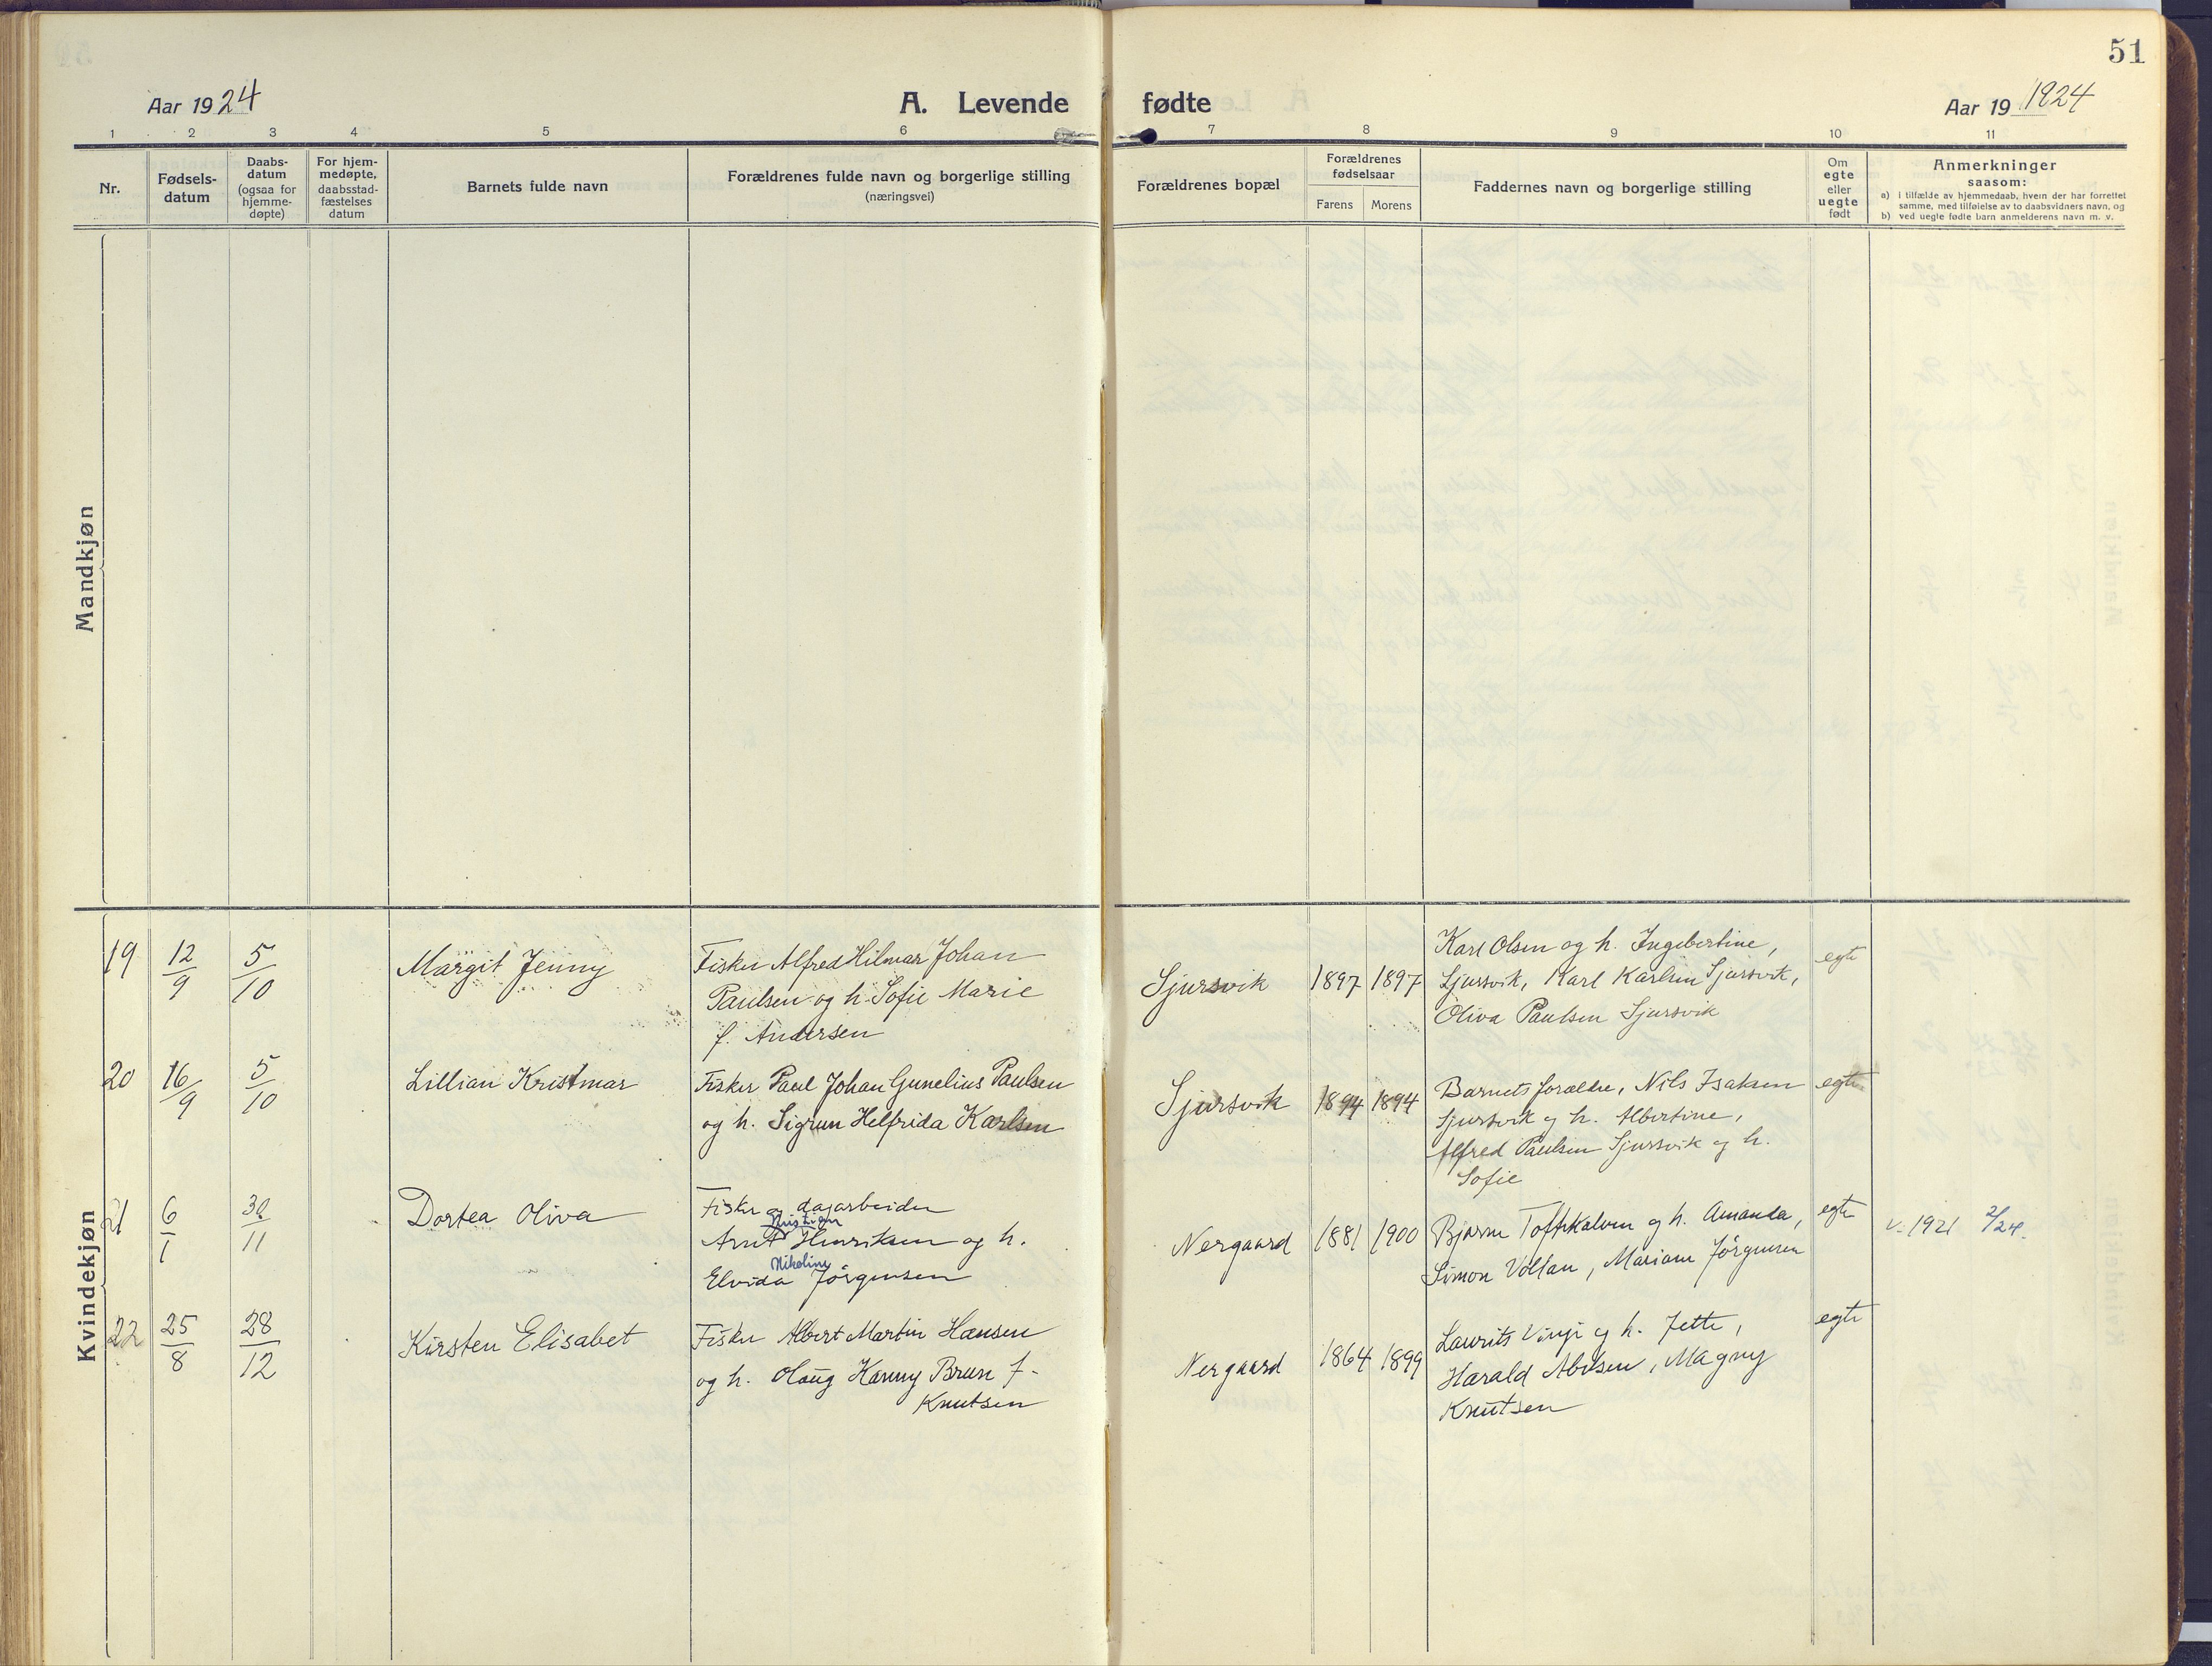 51
Aar 1924 A. Levende fødte Aar 19 1924
1 2 3 4 5 6 7 8 9 10 11
Nr.
Fødsels-
datum
Daabs-
datum
(ogsaa for
hjemme-
døpte)
For hjem-
medøpte,
daabsstad-
fæstelses
datum
Barnets fulde navn
Forældrenes fulde navn og borgerlige stilling
(næringsvei)
Forældrenes bopæl
Forældrenes
fødselsaar
Farens Morens
Faddernes navn og borgerlige stilling
Om
egte
eller
uegte
født
Anmerkninger
saasom:
a) i tilfælde av hjemmedaab, hvem der har forrettet
samme, med tilføielse av to daabsvidners navn, og
b) ved uegte fødte barn anmelderens navn m. v.
Mandkjøn
Kvindekjøn
19 12/9 5/10 Margit Jenny
Fisker Alfred Hilmar Johan
Paulsen og h. Sofie Marie
f. Andersen
Sjursvik 1897 1897
Karl Olsen og h. Ingebertine,
Sjursvik, Karl Karlsen Sjursvik,
Oliva Paulsen Sjursvik
egte
20 16/9 5/10 Lillian Kristmar
Fisker Paul Johan Gunelius Paulsen
og h. Sigrun Helfrida Karlsen
Sjursvik 1894 1894
Barnets forældre, Nils Isaksen
Sjursvik og h. Albertine,
Alfred Paulsen Sjursvik og h.
Sofie
egte
21 6/1 30/11 Dortea Oliva
Fisker og dagarbeider
Kristian
Arnt Henriksen og h.
Nikoline
Elvida Jörgensen
Nergaard 1881 1900
Bjarne Toftekalven og h. Amanda,
Simon Voltan, Mariane Jörgensen
egte
v. 1921 2/24.
22 25/8 28/12 Kirsten Elisabet
Fisker Albert Martin Hansen
og h. Olaug Hanny Brun f.
Knutsen
Nergaard 1864 1899
Laurits Vinje og h. Jette,
Harald Abelsen, Magny
Knutsen
egte